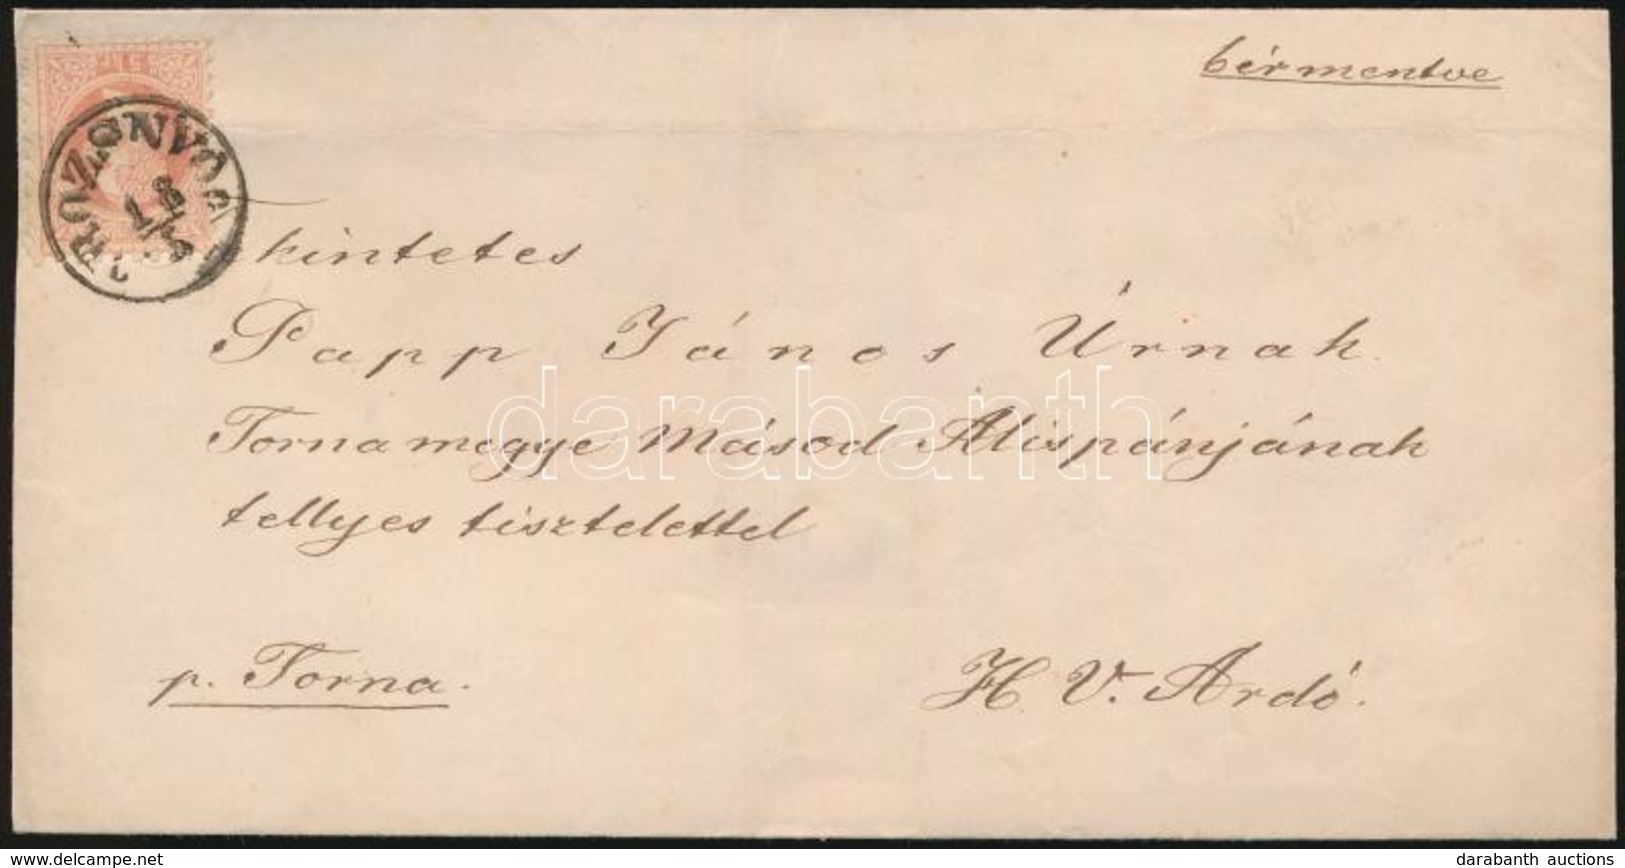 bérmentve
ROZSNYÓ
Tkintetes
Papp János Úrnak
Torna megye Másod Alispánjának
tellyes tisztelettel
p. Torna.
H. V. Ardó.
darabanth
delcampe.net
darabanth auctions